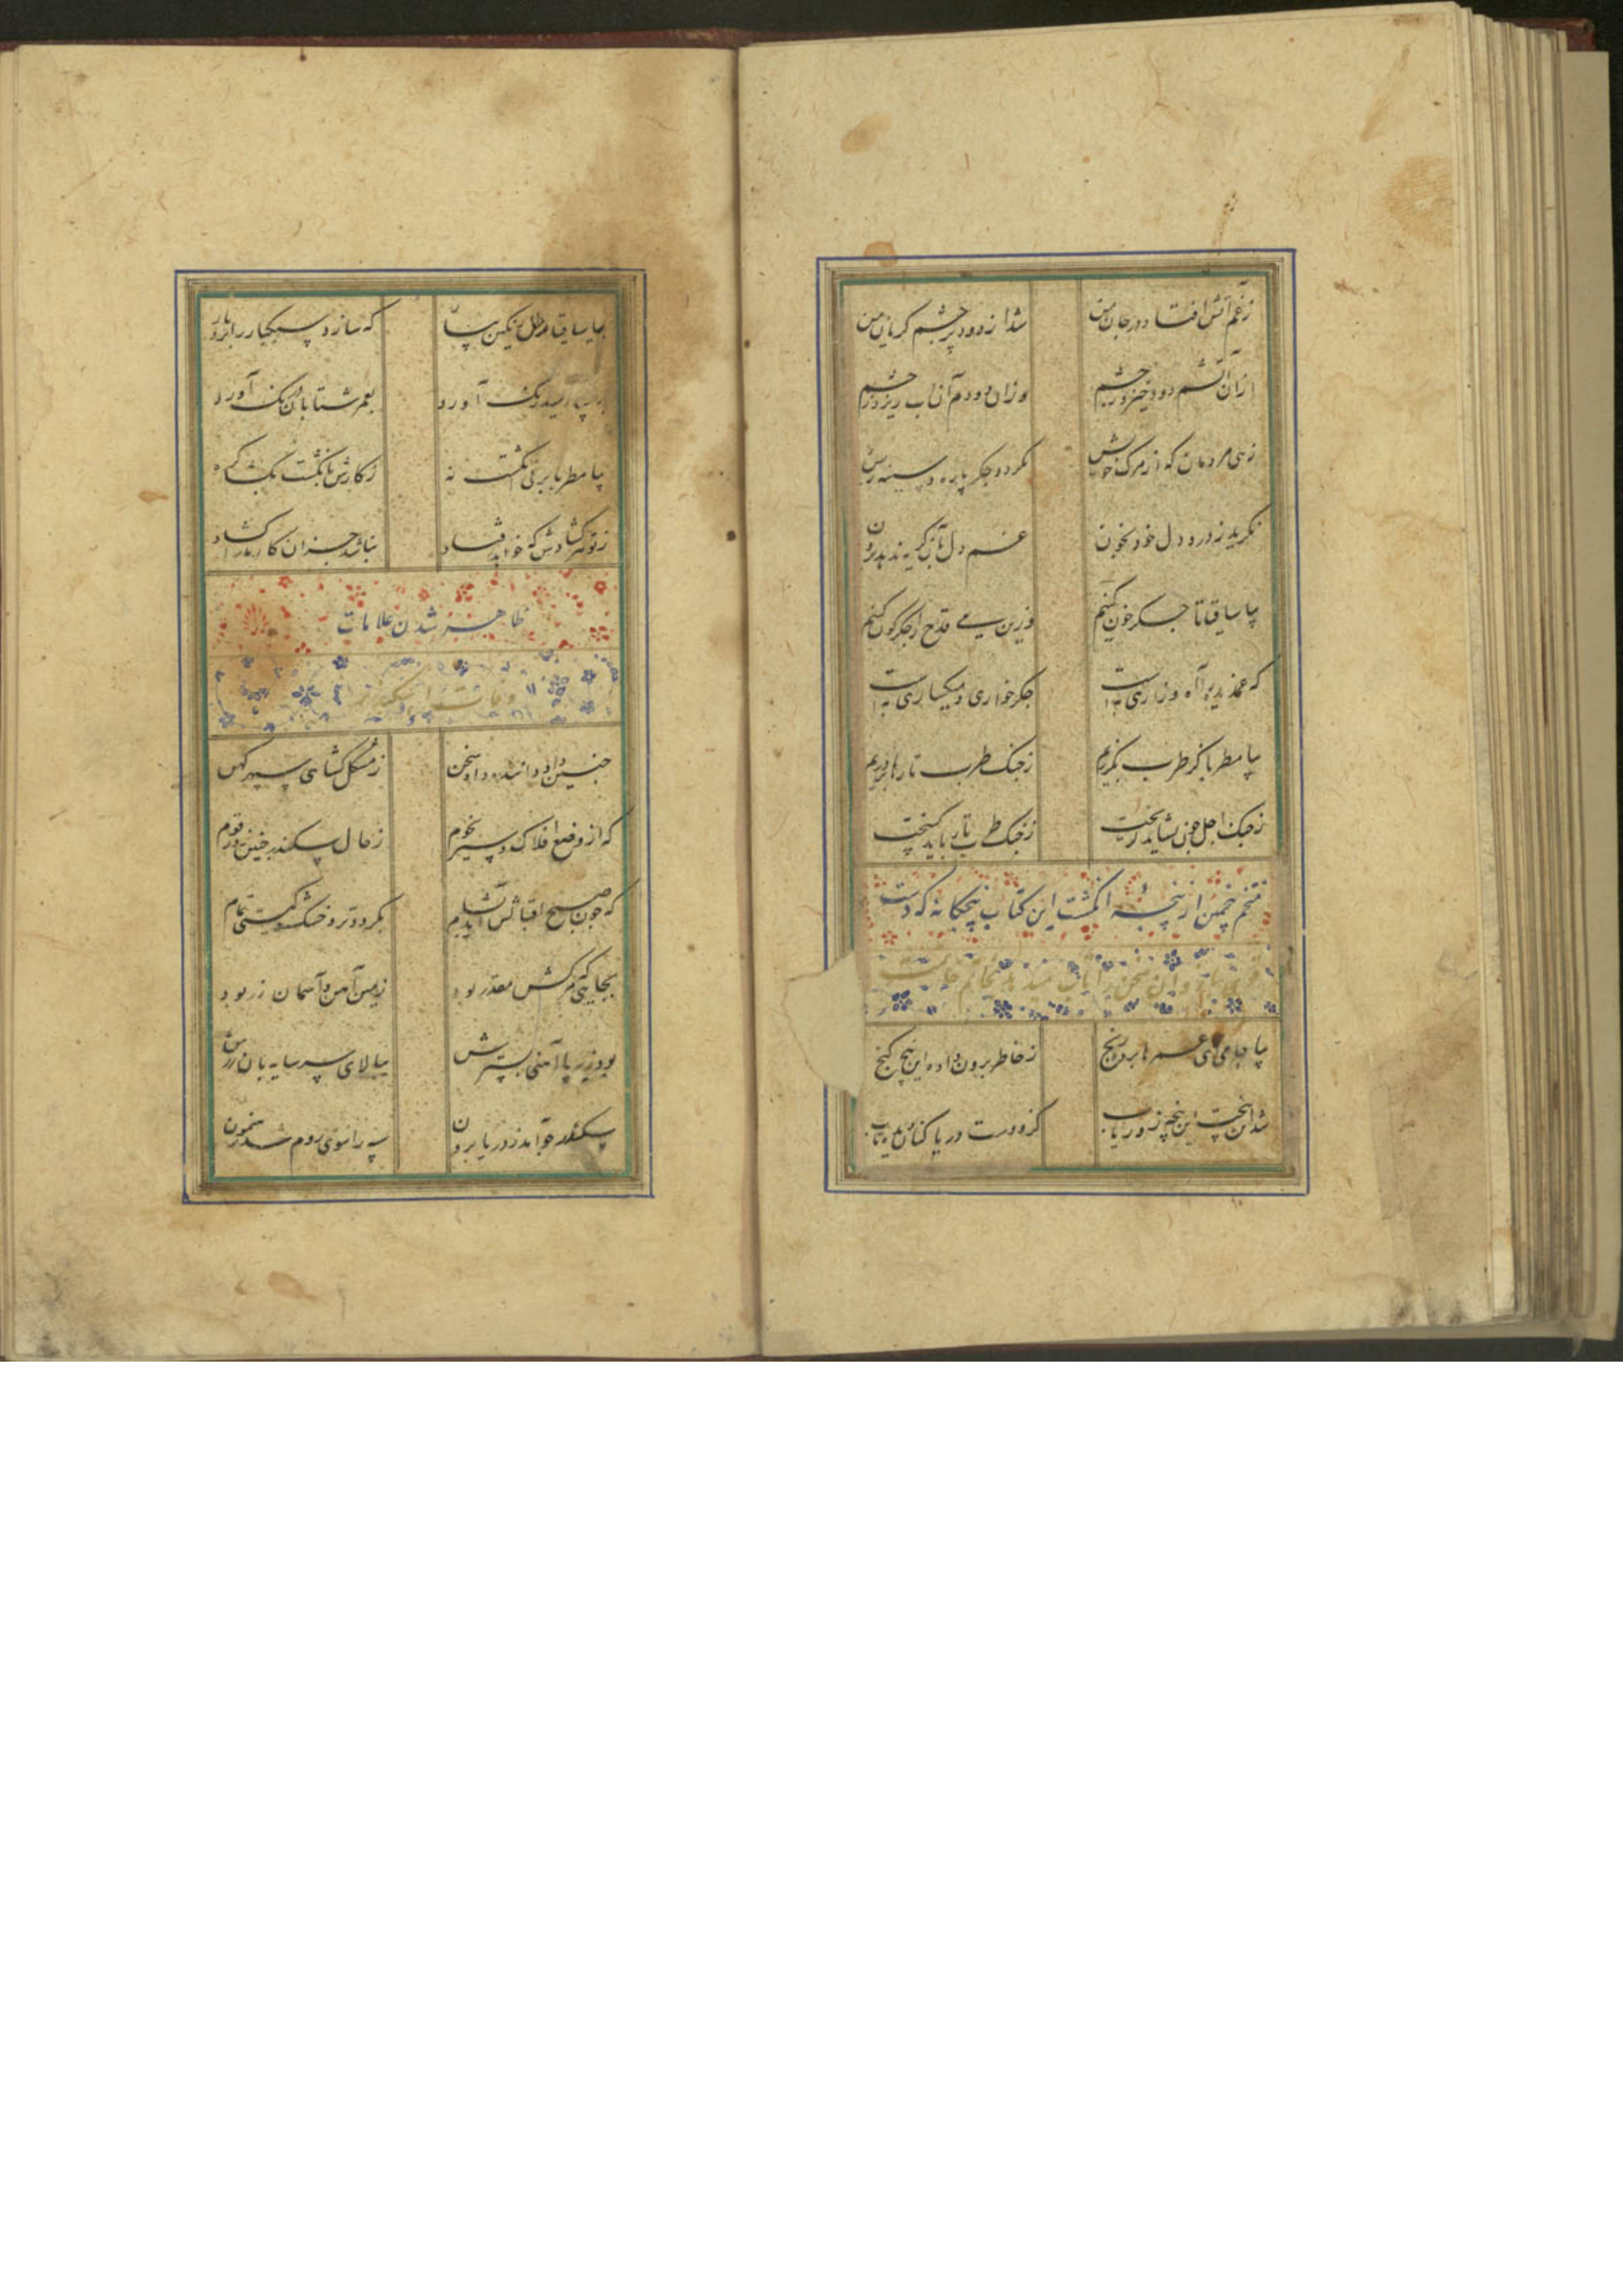 ز غم آتش افتاد در جان من
شد از دود پر چشم گریان من
از آن آتشم دود خیزد ز چشم
وزان دود دم آب ریزد ز چشم
زهی مردمان که از مرگ خویش
نگردد جگر پاره و سینه ریش
نگرید ز درد دل خود بخون
غم دل بآن گریه ندهد برون
بیا ساقیا تا جگر خون کنیم
وزین می قدح را جگرگون کنیم
که غمدیده را آه و زاری به است
جگرخواری و میگساری به است
بیا مطربا کز طرب بگذریم
ز چنگ طرب تارها بردریم
ز چنگ اجل چون نشاید گریخت
ز چنگ طرب تار باید گسیخت
ختم خمس از پنجه انگشت این کتاب پنجگانه که دست
بیا جامی ای عمرها برده رنج
ز خاطر برون داده این پنج گنج
شد این پنجت این پنجه زوریاب
کزو دست دریا کفان دیده تاب
بیا ساقیا رطل سنگین بیار
که سازد سبکبار را بردبار
آورد
بعمر شتابان درنگ آورد
بیا مطربا بر نی انگشت نه
ز کارش بانگشت بگشا گره
ز تو گر گشادش نخواهد فتاد
نباشد جز آن کار ما را گشاد
ظاهر شدن علامات
وفات اسکندر
چنین داد داننده داد سخن
ز مشکل گشای سپهر کهن
که از وضع افلاک و سیر نجوم
ز حال سکندر چنین زد رقوم
که چون صبح اقبالش آید بشام
بگردد تر و خشک گیتی تمام
بجایی که مرگش مقدر بود
زمین آهن و آسمان زر بود
بود زیر پا آهنین بسترش
ببالای سر سایه‌بان زرش
سکندر چو آمد ز دریا برون
سپه را سوی روم شد رهنمون